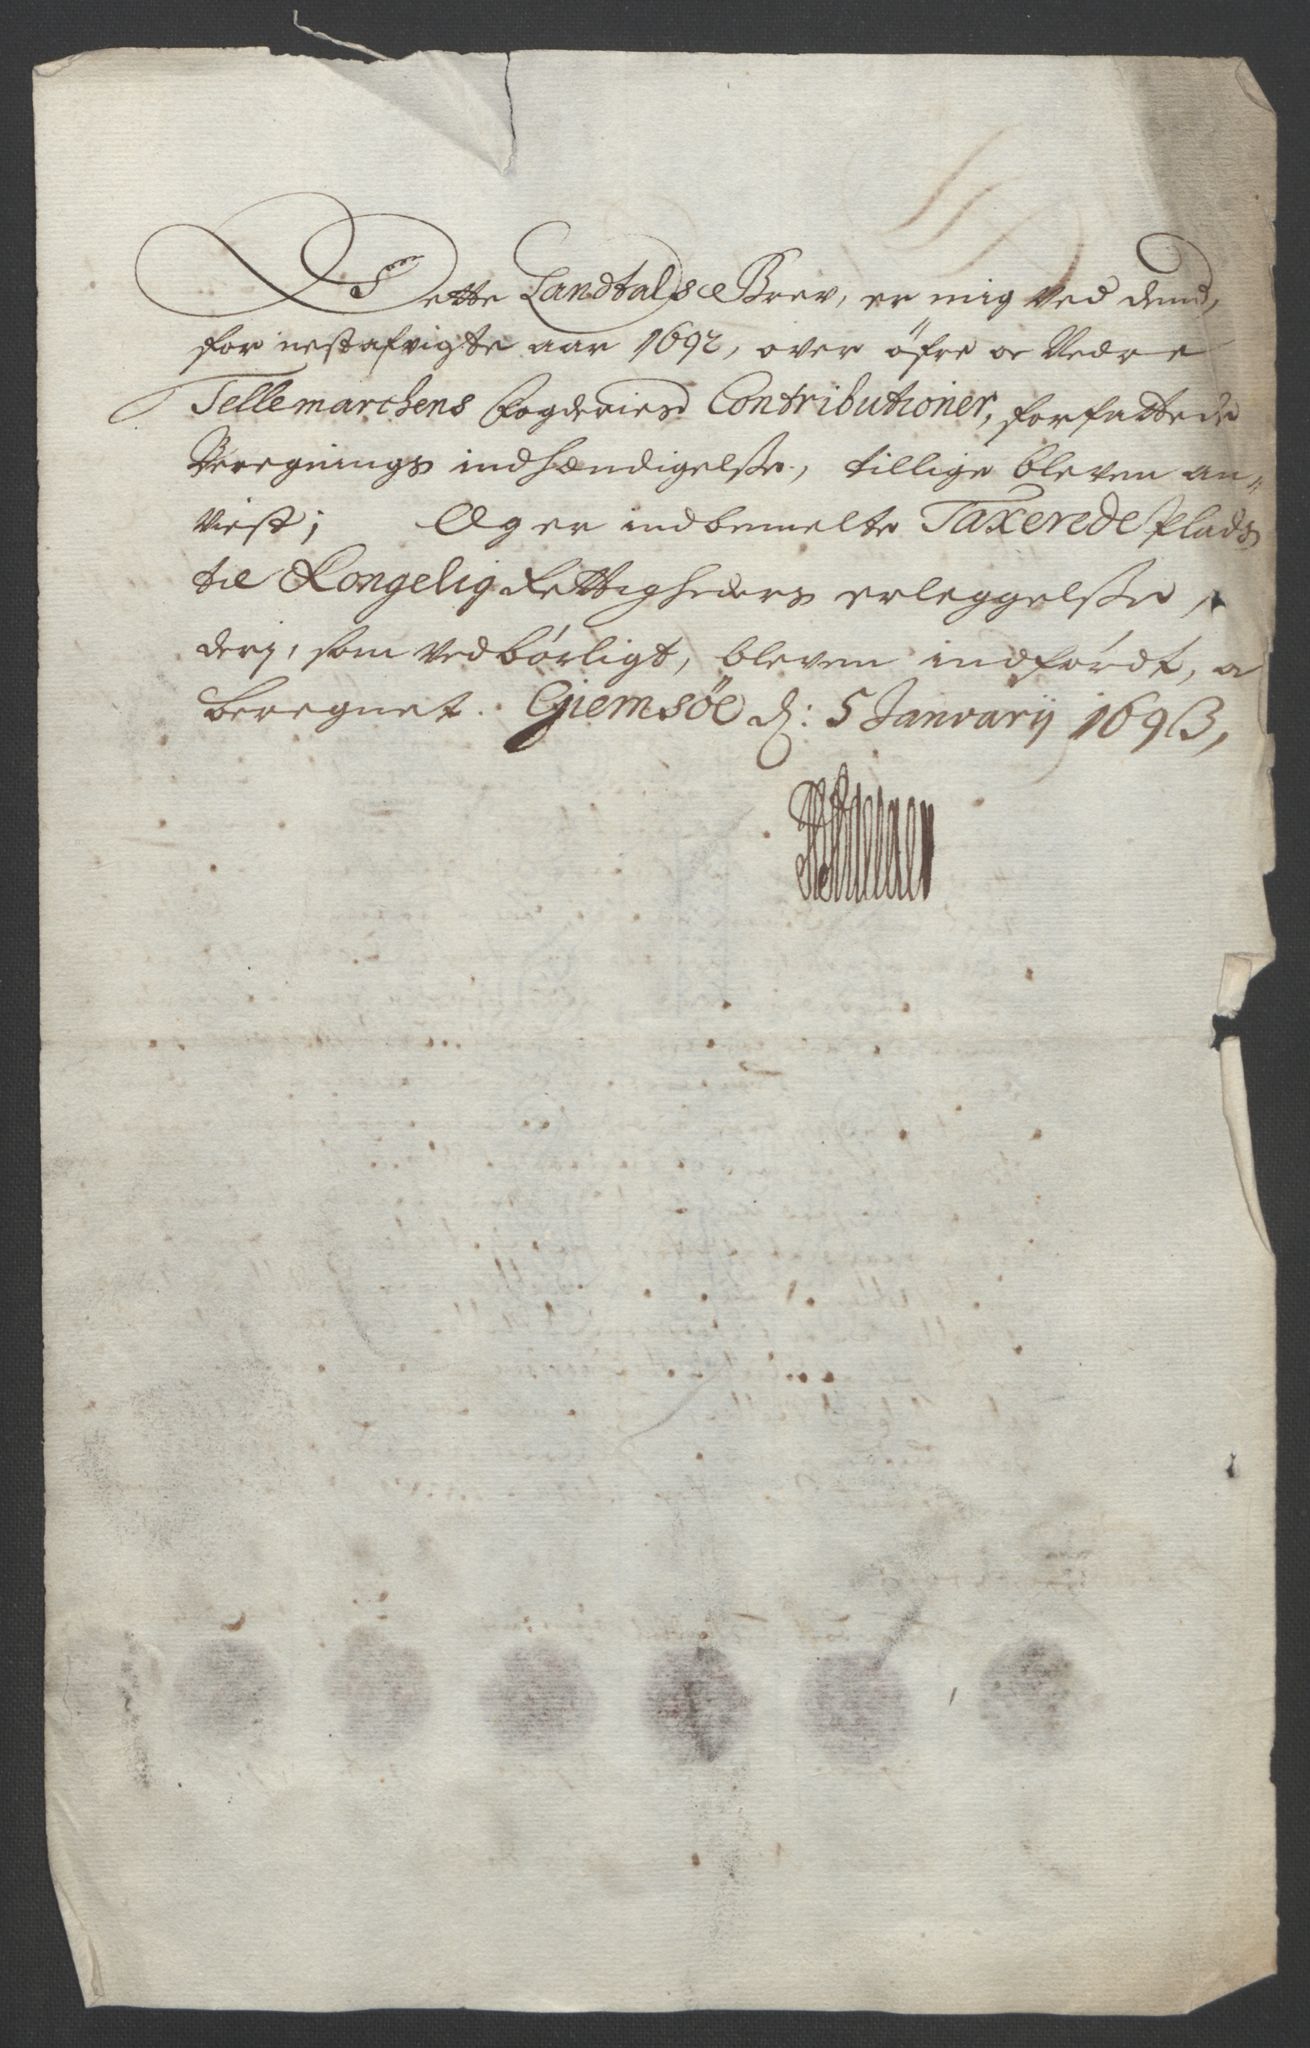 Dette Landtals Brev, er mig ved dend,
for nestafvigte aar 1692, over öfre oc Nedre
Tellemarchens Fogderies Contributioner, forfattede
Beregnings indhændigelse, tillige bleven an=
viist; Og er indbemelte Taxerede Plads
til Kongelig Rettigheders erleggelse,
derj, som vedbörligt, bleven indfördt, o
beregnet. Gjemsöe d: 5 Januarij 1693,